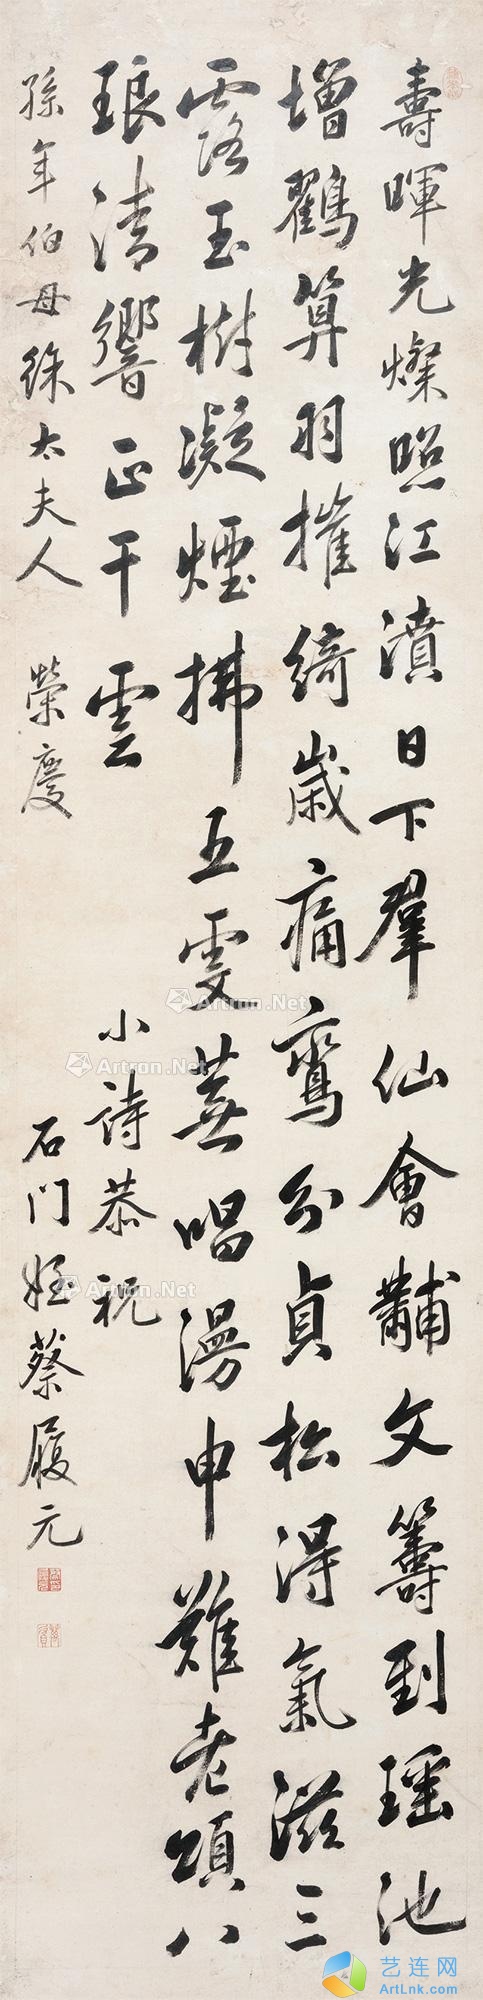 壽暉光燦照江濆日下羣仙會黼文籌到瑶池
增鶴算羽摧綺歲痛鸞分貞松得氣滋三
露玉樹凝煙拂五雯蕪唱漫申難老頌八
琅清響正干雲
小詩恭祝
孫年伯母徐太夫人 榮慶
石门姪蔡履元
Artron.Net
Artron.Net
Artron.Net
Artron.Net
艺连网
ArtLnk.Com